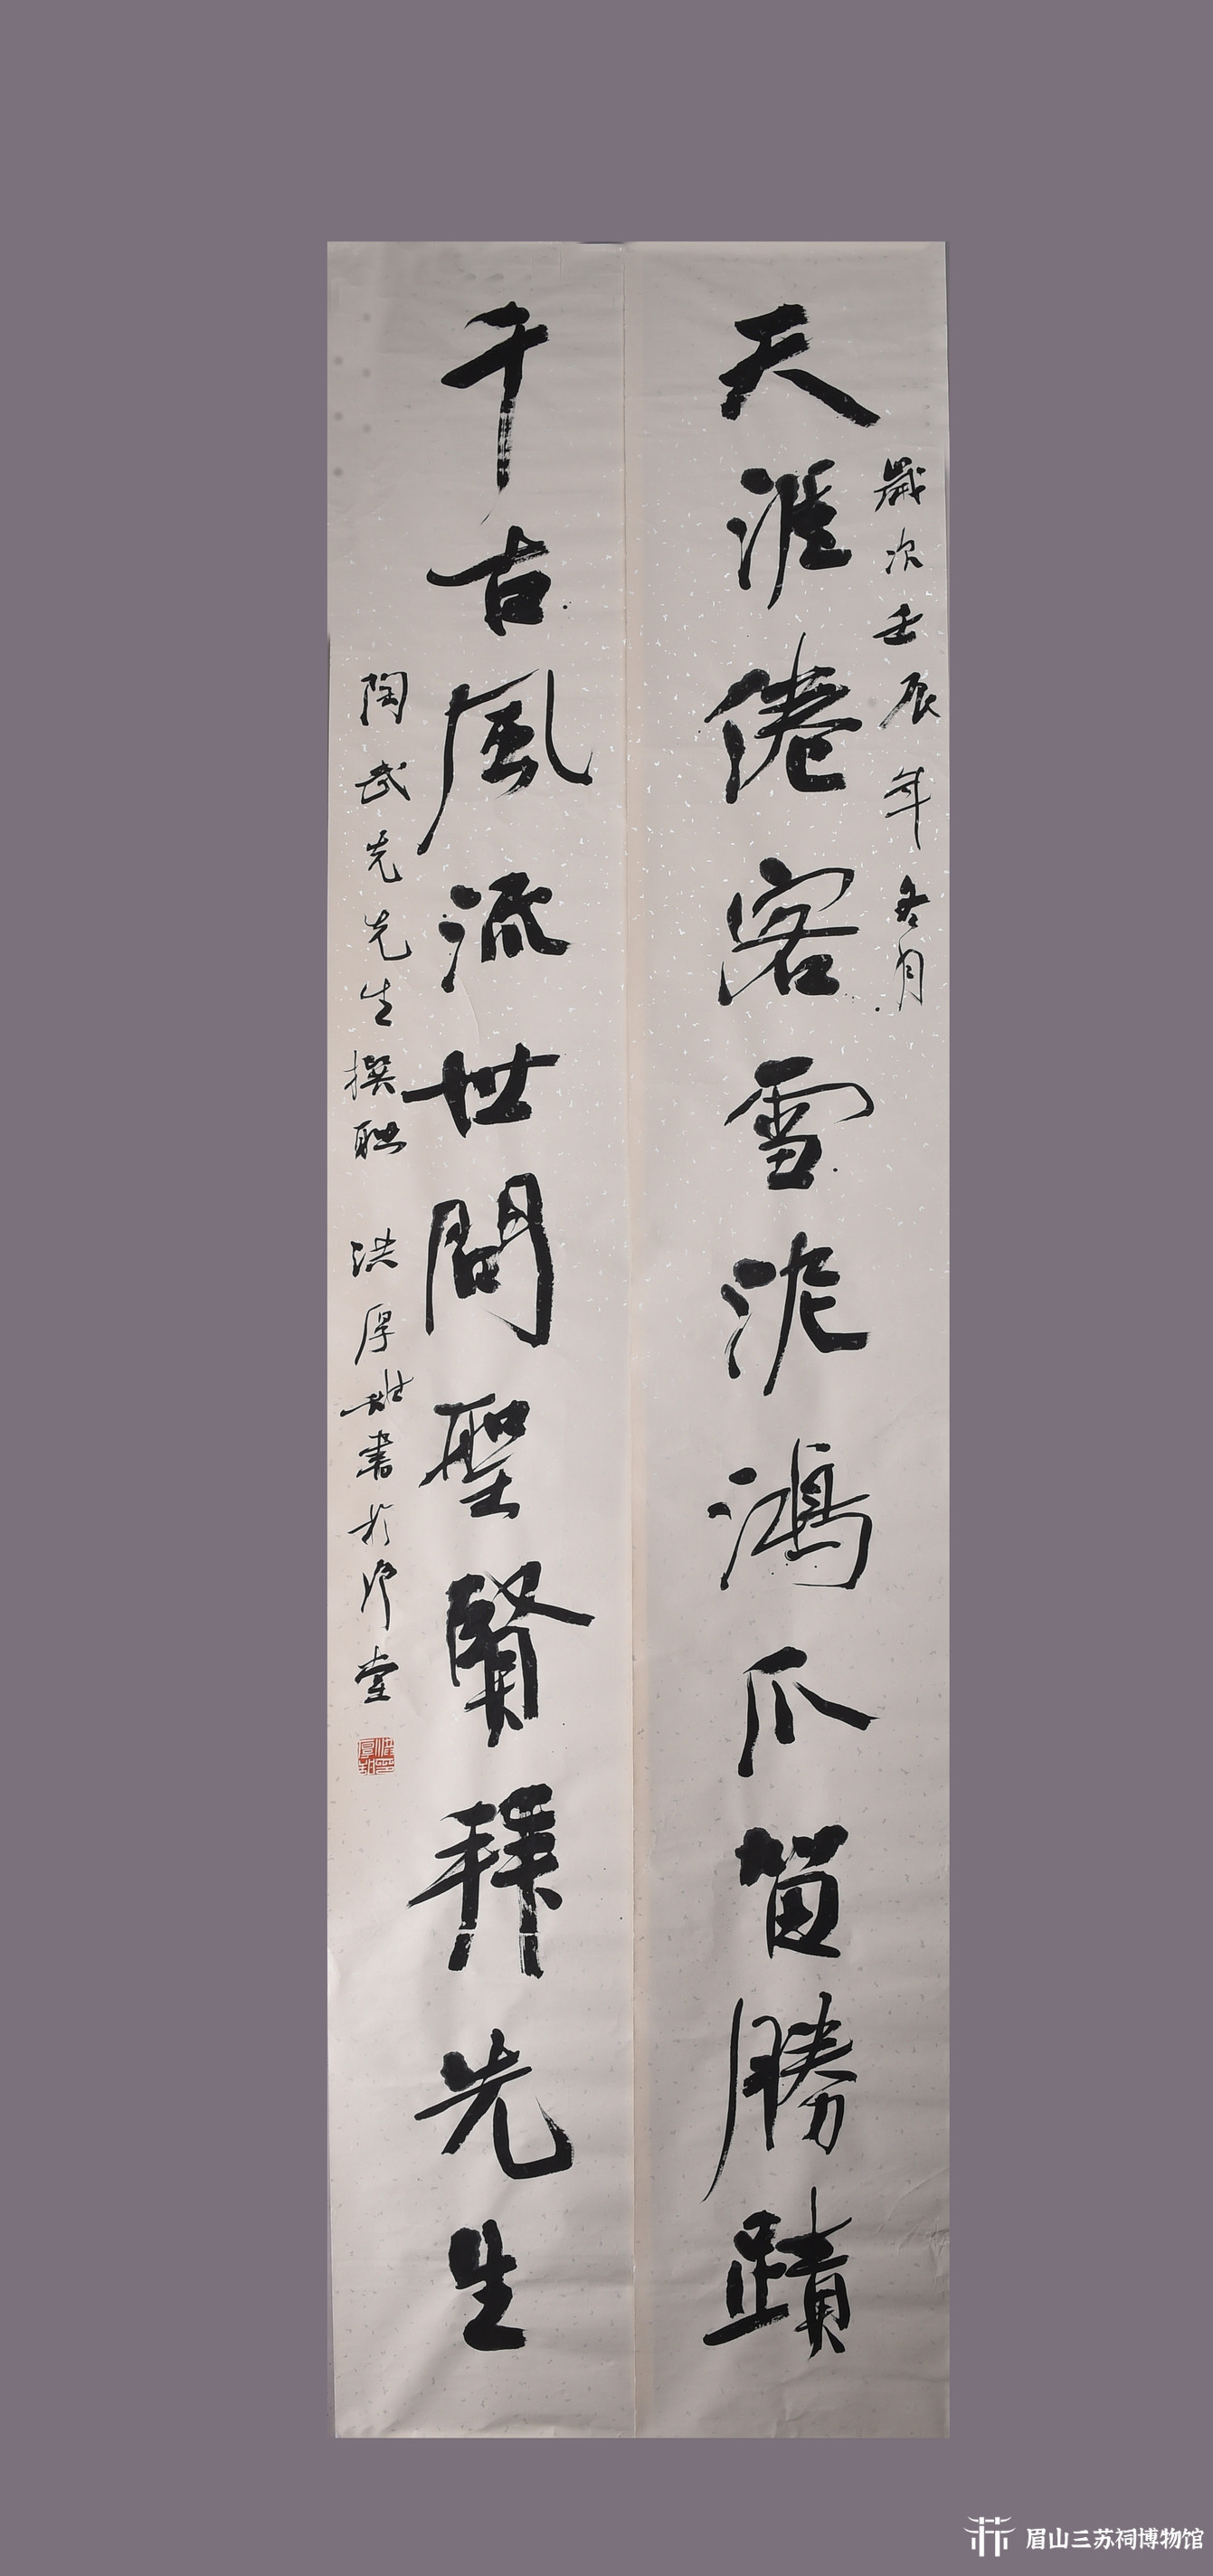 歲次壬辰年冬月
天涯倦客雪泥鴻爪留勝蹟
千古風流世間聖賢拜先生
陶武先先生撰聯 洪厚甜書於淨堂
眉山三苏祠博物馆